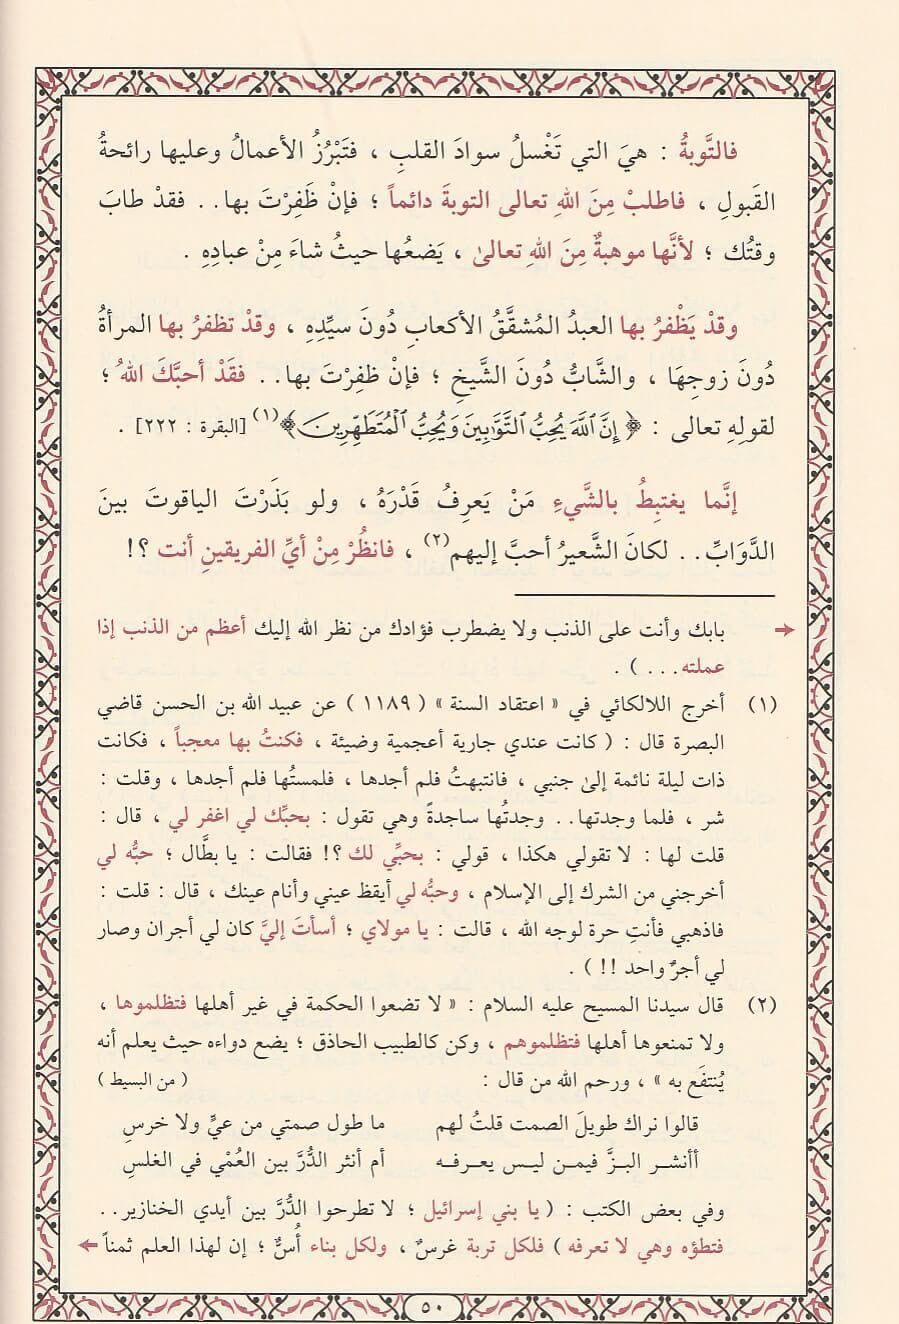 فالتَّوبةُ : هيَ التي تَغْسلُ سوادَ القلبِ ، فتَبْرُزُ الأعمالُ وعليها رائحةُ
القَبولِ ، فاطلبْ مِنَ اللهِ تعالى التوبةَ دائماً ؛ فإنْ ظَفِرْتَ بها.. فقدْ طابَ
وقتُك ؛ لأنَّها موهبةٌ مِنَ اللهِ تعالىٰ ، يَضعُها حيثُ شاءَ مِنْ عبادِهِ .
وقدْ يَظْفرُ بها العبدُ المُشقَّقُ الأكعابِ دُونَ سيِّدِهِ ، وقدْ تظفرُ بها المرأةُ
دُونَ زوجِهَا ، والشَّابُّ دُونَ الشَّيخِ ؛ فإنْ ظفِرْتَ بها.. فقَدْ أحبَّكَ اللهُ ؛
لقولِهِ تعالى : ﴿ إِنَّ ٱللَّهَ يُحِبُّ ٱلتَّوَّٰبِينَ وَيُحِبُّ ٱلْمُتَطَهِّرِينَ ﴾(١) [البقرة : ٢٢٢] .
إنَّما يغتبِطُ بالشَّيءِ مَنْ يَعرِفُ قَدْرَهُ ، ولو بَذَرْتَ الياقوتَ بينَ
الدَّوَابِّ.. لكانَ الشَّعيرُ أحبَّ إليهم(٢) ، فانظُرْ مِنْ أيِّ الفريقينِ أنت ؟!
بابك وأنت على الذنب ولا يضطرب فؤادك من نظر الله إليك أعظم من الذنب إذا
عملته... ) .
(١) أخرج اللالكائي في « اعتقاد السنة » ( ١١٨٩ ) عن عبيد الله بن الحسن قاضي
البصرة قال : ( كانت عندي جارية أعجمية وضيئة ، فكنتُ بها معجباً ، فكانت
ذات ليلة نائمة إلىٰ جنبي ، فانتبهتُ فلم أجدها ، فلمستُها فلم أجدها ، وقلت :
شر ، فلما وجدتها.. وجدتُها ساجدةً وهي تقول : بحبِّك لي اغفر لي ، قال :
قلت لها : لا تقولي هكذا ، قولي : بحبِّي لك ؟! فقالت : يا بطَّال ؛ حبُّه لي
أخرجني من الشرك إلى الإسلام ، وحبُّه لي أيقظ عيني وأنام عينك ، قال : قلت :
فاذهبي فأنتِ حرة لوجه الله ، قالت : يا مولاي ؛ أسأتَ إليَّ كان لي أجران وصار
لي أجرٌ واحد !! ) .
(٢) قال سيدنا المسيح عليه السلام : « لا تضعوا الحكمة في غير أهلها فتظلموها ،
ولا تمنعوها أهلها فتظلموهم ، وكن كالطبيب الحاذق ؛ يضع دواءه حيث يعلم أنه
يُنتفَع به » ، ورحم الله من قال : ( من البسيط )
قالوا نراك طويلَ الصمت قلتُ لهم ما طول صمتي من عيٍّ ولا خرسِ
أأنشر البزَّ فيمن ليس يعرفه أم أنثر الدُّرَّ بين العُمْي في الغلسِ
وفي بعض الكتب : ( يا بني إسرائيل ؛ لا تطرحوا الدُّرَّ بين أيدي الخنازير..
فتطؤه وهي لا تعرفه ) فلكل تربة غرسٌ ، ولكل بناء أُسٌّ ؛ إن لهذا العلم ثمناً
٥٠